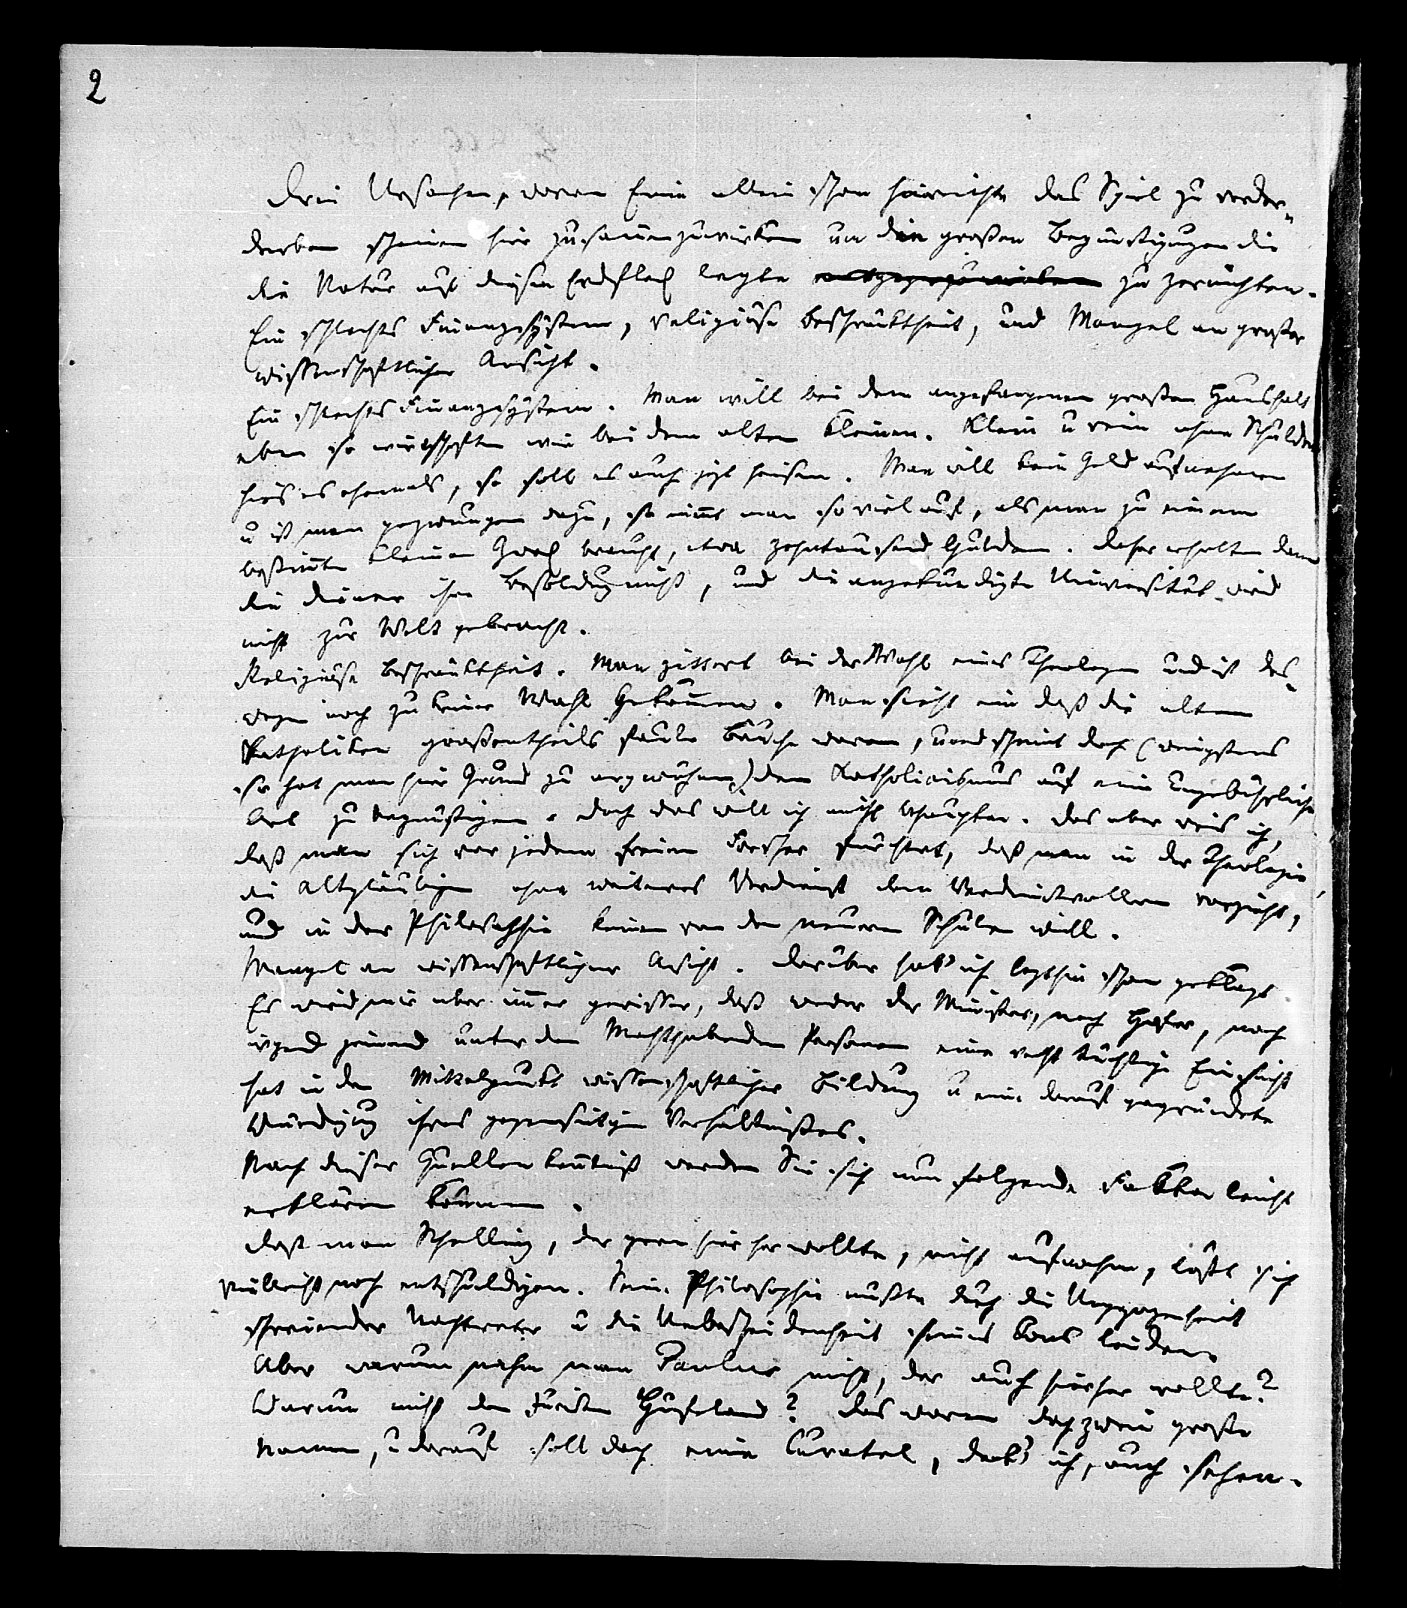 2
Drei Ursachen, wovon Eine allein schon hinreichte das Spiel zu verder-
derben scheinen hier zusammenzuwirken um die großen Begünstigungen die
die Natur auf diesen Erdfleck legte zu zernichten.
Ein schlechtes Finanzsystem, religiöse Beschränktheit, und Mangel an großer
wissenschaftlicher Ansicht.
Ein schlechtes Finanzsystem. Man will bei dem angefangenen großen Haushalt
eben so wirthschaften wie bei dem alten kleinen. Klein u rein ohne Schulden
hies es ehemals, so soll es auch jezt heisen. Man will kein Geld aufnehmen
u ist man gezwungen dazu, so nimt man so viel auf, als man zu einem
bestimten kleinen Zweck braucht, etwa zehntausend Gulden. Daher erhalten dann
die Diener ihre Besoldung nicht, und die angekündigte Universität wird
nicht zur Welt gebracht.
Religiöse Beschränktheit. Man zittert bei der Wahl eines Theologen und ist des-
wegen noch zu keiner Wahl gekommen. Man sieht ein daß die alten
Katholiken großentheils faule Bäuche waren, und scheint doch (wenigstens
so hat man hier Grund zu argwöhnen) den Katholicismus auf eine ungebührliche
Art zu begünstigen. Doch das will ich nicht behaupten. Das aber weis ich,
daß man sich vor jedem freien Forscher fürchtet, daß man in der Theologie
die Altgläubigen ohne weiteres Verdienst dem Verdienstvollern vorzieht,
und in der Philosophie keinen von den neuern Schulen will.
Mangel an wissenschaftlicher Ansicht. Darüber hab' ich lezthin schon geklagt.
Es wird mir aber immer gewisser, daß weder der Minister, noch Hofer, noch
irgend jemand unter den Machthabenden Personen eine recht tüchtige Einsicht
hat in den Mittelpunkt wissenschaftlicher Bildung u eine darauf gegründete
Würdigung ihres gegenseitigen Verhältnißes.
Nach dieser Quellenkentniß werden Sie sich nun folgende Fakta leicht
erklären können.
Daß man Schelling, der gern hierher wollte, nicht aufnahm, läßt sich
vielleicht noch entschuldigen. Seine Philosophie mußte durch die
schreiender Nachtreter u die Unbescheidenheit seines Tons leiden.
Aber warum nahm man Paulus nicht, der auch hierher wollte?
Warum nicht den Juristen Hufeland? Das waren doch zwei große
Namen, u darauf soll doch eine Curatel, denk' ich, auch sehen.